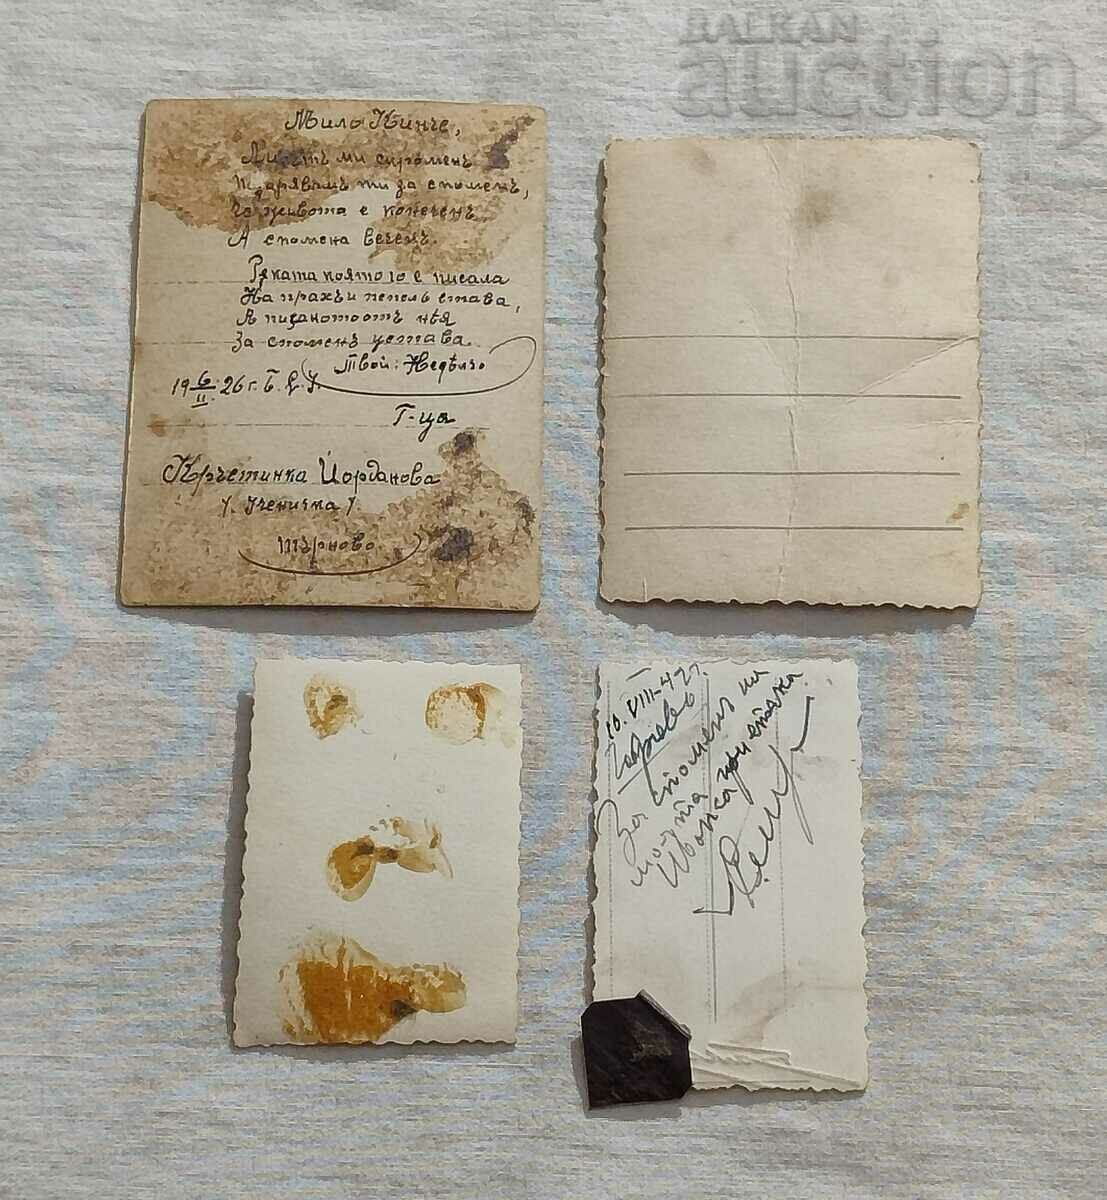 BALKAN
auction
Мило Кинче,
ми скроменъ
Подарявамъ ти за споменъ,
Че живота е конеченъ
А спомена веченъ.
Рѫката която го е писала
На прахъ и пепель става,
А писаното отъ нѣя
За споменъ устава.
Твой: Недѣлчо
19 6/II 26 г.
Г-ца
Йорданова
/. Ученичка /.
Търново.
10.VIII-42г.
За споменъ на
моята приятелка